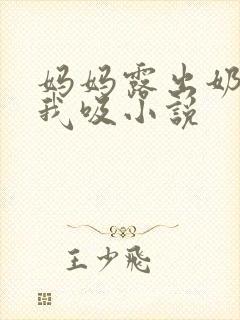 妈妈露出奶
我吸小說
王少飛